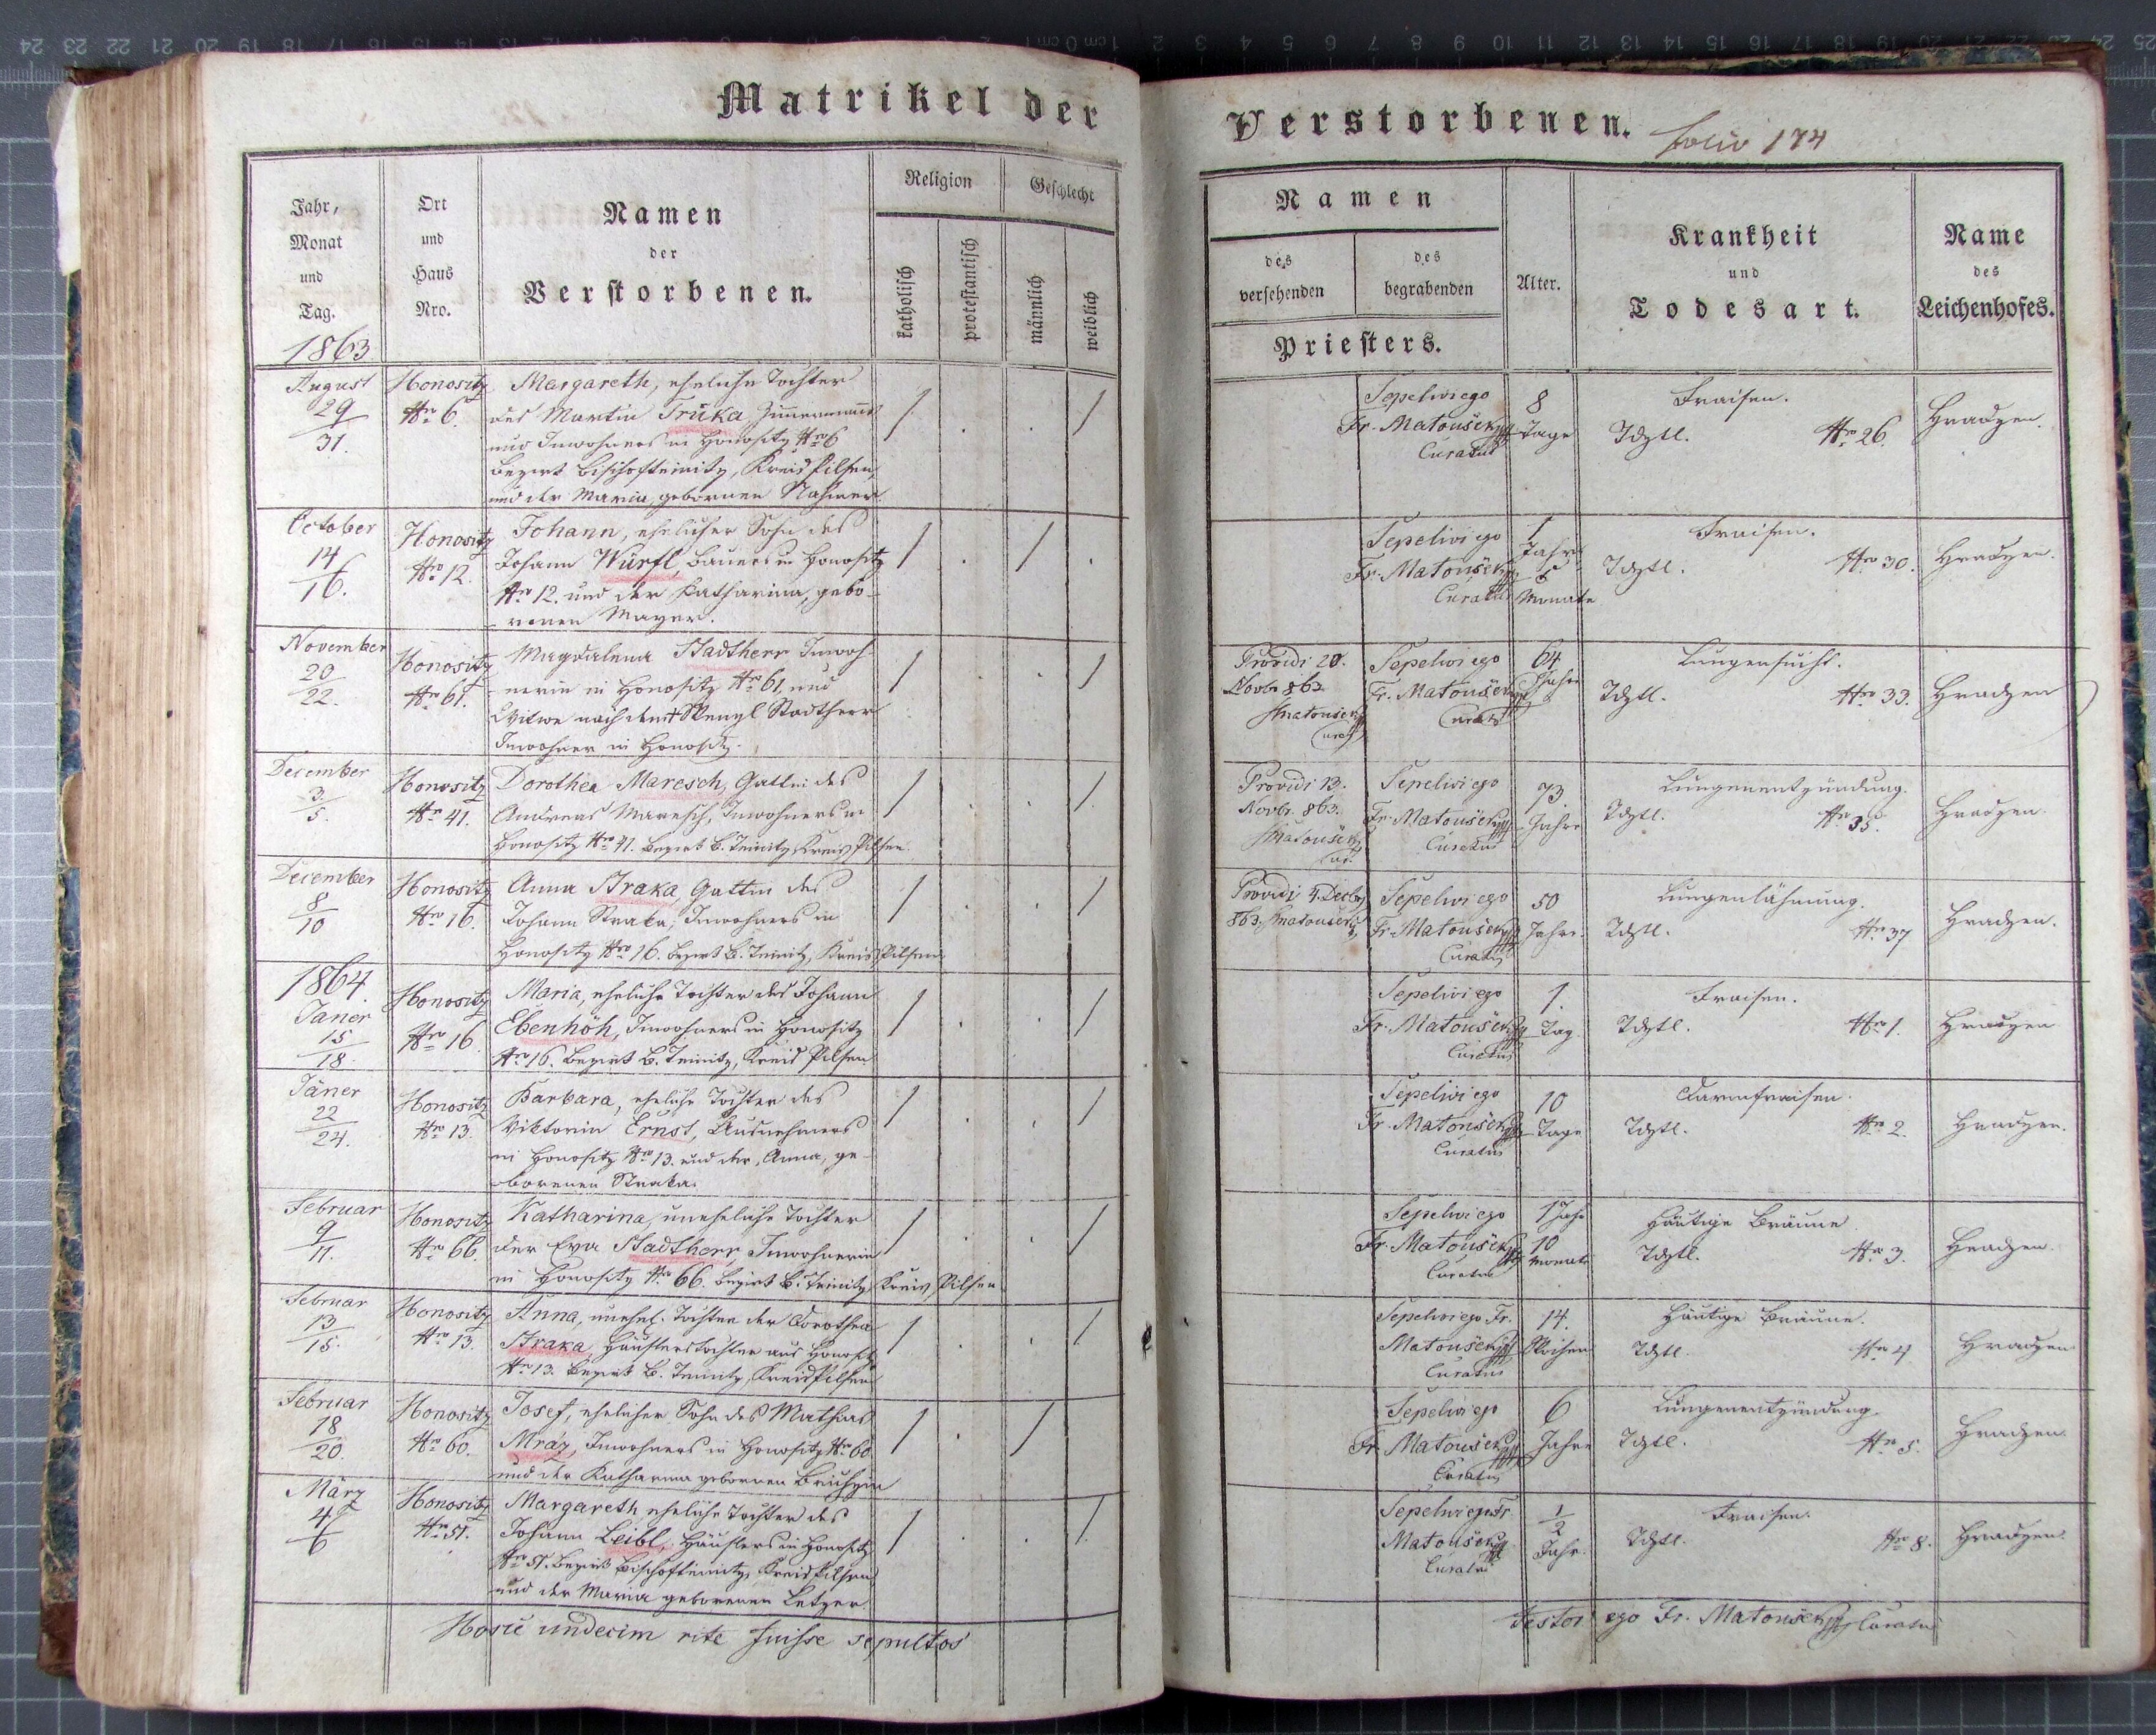 Matrikel der
Verstorbenen.
folio 174
Jahr,
Monat
und
Tag.
1863
Ort
und
Haus
Nro.
Namen
der
Verstorbenen.
Religion
katholisch
protestantisch
Geschlecht
männlich
weiblich
Namen
des
versehenden
des
begrabenden
Priesters.
Alter.
Krankheit
und
Todesart.
Name
des
Leichenhofes.
August
29
31.
Honositz
Nro 6.
Margareth, eheliche Tochter
des Martin Truka, Zimmermanns
und Inwohners in Honositz Nro 6
Bezirk Bischofteinitz, Kreis Pilsen,
und der Maria, gebornen
Sepelivi ego
Fr. Matoušek
Curatus
8
Tage
Fraisen.
Tdztl. Nro 26.
Hradzen.
October
14
16.
Honositz
Nro 12.
Johann, ehelicher Sohn des
Johann Würfl, Bauers in Honositz
Nro 12. und der Katharina, gebo-
renen Mayer.
Sepelivi ego
Fr. Matoušek
Curatus
1
Jahr
5
Monate
Fraisen.
Tdztl. Nro 30.
Hradzen.
November
20
22.
Honositz
Nro 61.
Magdalena Stadtherr Inwoh-
nerin in Honositz Nro 61. und
Witwe nach dem † Wenzl Stadtherr
Inwohner in Honositz.
Providi 20.
Novbr 863.
Matoušek
Curat
Sepelivi ego
Fr. Matoušek
Curatus
64
Jahre
Lungensucht.
Tdztl. Nro 33.
Hradzen
December
3
5.
Honositz
Nro 41.
Dorothea Maresch, Gattin des
Andreas Maresch, Inwohners in
Honositz Nro 41. Bezirk B. Teinitz, Kreis Pilsen.
Providi 13.
Novbr. 863.
Matoušek
Cur.
Sepelivi ego
Fr. Matoušek
Curatus
73.
Jahre
Lungenentzündung.
Tdztl. Nro 35.
Hradzen.
December
8
10
Honositz
Nro 16.
Anna Straka, Gattin des
Johann Straka, Inwohners in
Honositz Nro 16. Bezirk B. Teinitz, Kreis Pilsen
Providi 4. Decbr
863. Matoušek
Sepelivi ego
Fr. Matoušek
Curatus
50
Jahre.
Lungenlähmung.
Tdztl. Nro 37
Hradzen.
1864.
Janer
15
18.
Honositz
Nro 16.
Maria, eheliche Tochter des Johann
Ebenhöh, Inwohners in Honositz
Nro 16. Bezirk B. Teinitz, Kreis Pilsen.
Sepelivi ego
Fr. Matoušek
Curatus
1.
Tag.
Fraisen.
Tdztl. Nro 1.
Hradzen
Jäner
22
24.
Honositz
Nro 13.
Barbara, eheliche Tochter des
Viktorin Ernst, Ausnehmers
in Honositz Nro 13. und der Anna, ge-
borenen Straka.
Sepelivi ego
Fr. Matoušek
Curatus
10
Tage
Darmfraisen.
Tdztl. Nro 2.
Hradzen.
Februar
9
11.
Honositz
Nro 66.
Katharina, uneheliche Tochter
der Eva Stadtherr Inwohnerin
in Honositz Nro 66. Bezirk B. Teinitz, Kreis Pilsen
Sepelivi ego
Fr. Matoušek
Curatus
1 Jahr
10
Monate
Häutige Bräune.
Tdztl. Nro 3.
Hradzen.
Februar
13
15.
Honositz
Nro 13.
Anna, unehel. Tochter der Dorothea
Straka, Häuslerstochter aus Honositz
Nro 13. Bezirk B. Teinitz, Kreis Pilsen
Sepelivi ego Fr.
Matoušek
Curatus
14.
Wochen
Häutige Bräune.
Tdztl. Nro 4.
Hradzen
Februar
18
20.
Honositz
Nro 60.
Josef, ehelicher Sohn des Mathias
Mráz, Inwohners in Honositz Nro 60
und der Katharina gebornen
Sepelivi ego
Fr. Matoušek
Curatus
6
Jahre
Lungenentzündung.
Tdztl. Nro 5.
Hradzen.
März
4
6
Honositz
Nro 51.
Margareth eheliche Tochter des
Johann Leibl, Häuslers in Honositz
Nro 51. Bezirk Bischofteinitz, Kreis Pilsen
und der Maria geborenen Letzer.
Sepelivi ego Fr
Matoušek
Curatus
1/2
Jahr.
Fraisen.
Tdztl. Nro 8.
Hradzen.
Hosce undecim rite fuisse sepultos
testor ego Fr. Matoušek Curatus